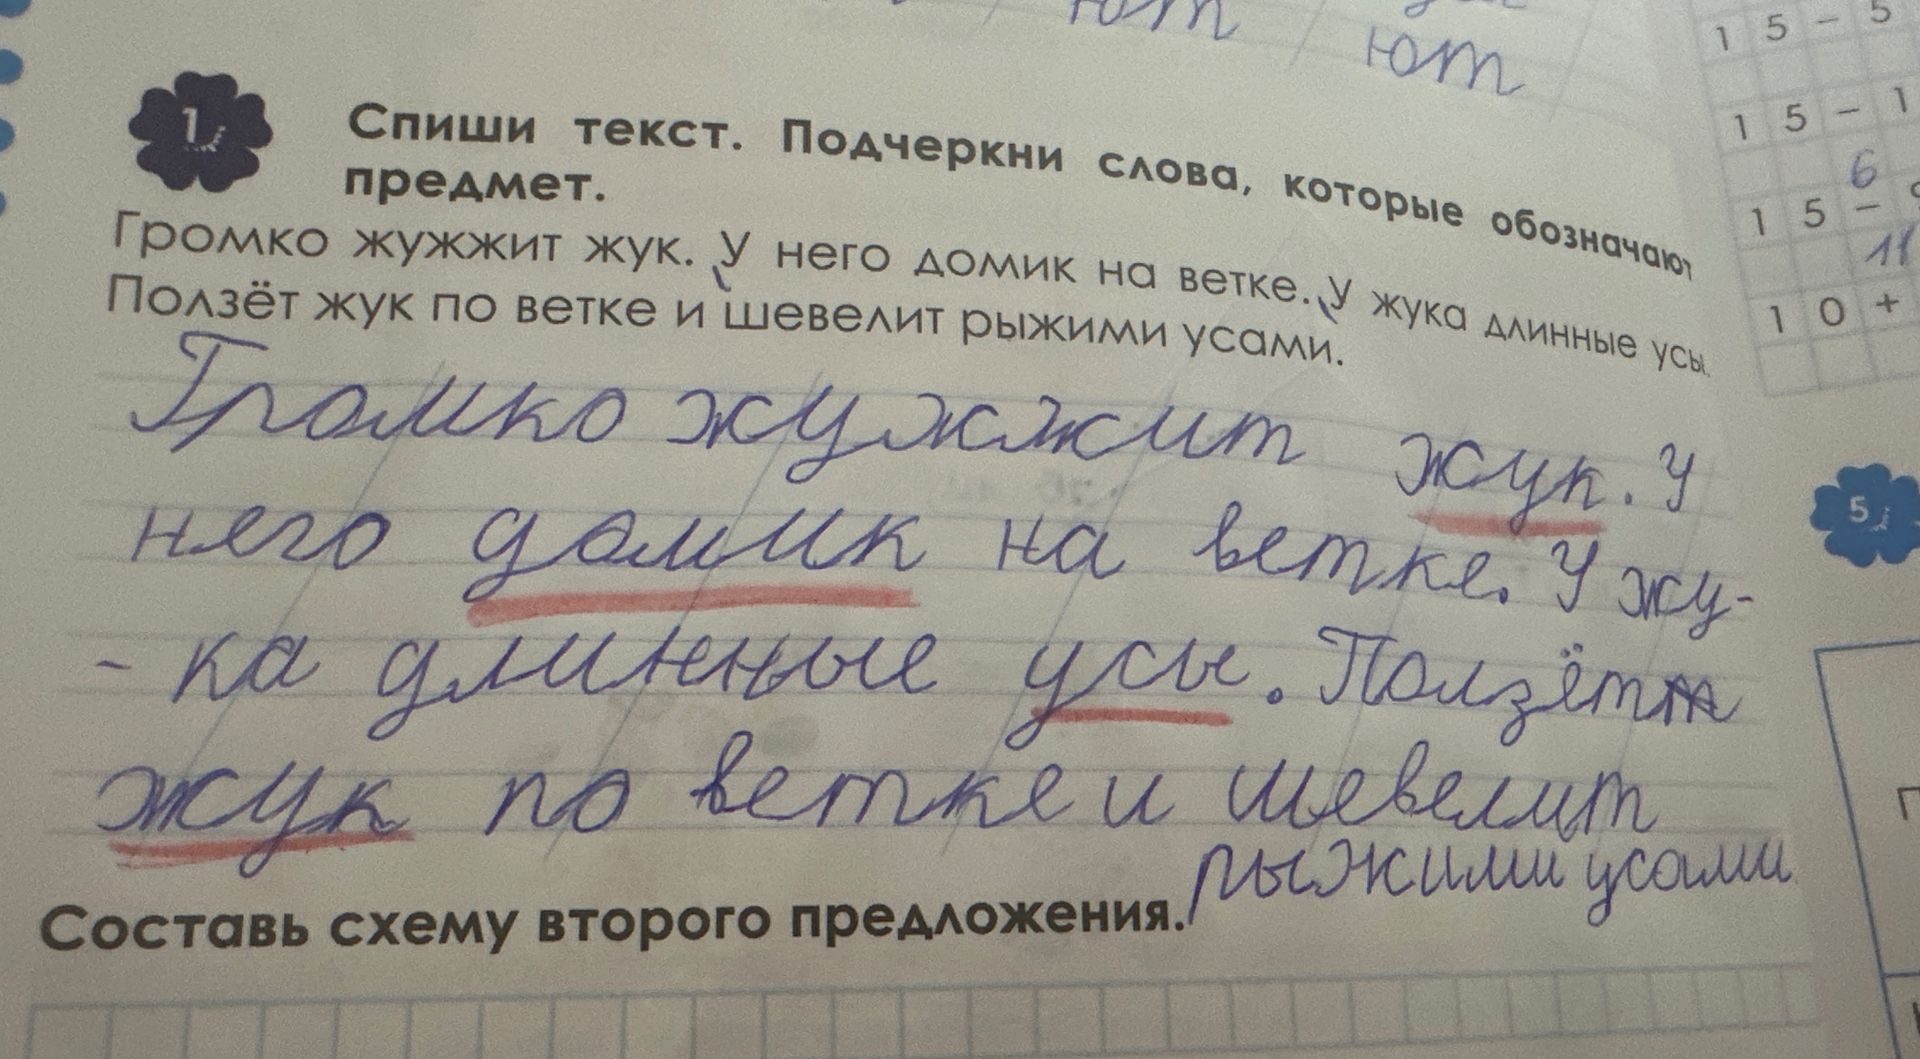 ют
ют
15-5
15-1
6
15-
11
10+
1
Спиши текст. Подчеркни слова, которые обозначают
предмет.
Громко жужжит жук. У него домик на ветке. У жука длинные усы.
Ползёт жук по ветке и шевелит рыжими усами.
Громко жужжит жук. У
него домик на ветке. У жу-
- ка длинные усы. Ползёт
жук по ветке и шевелит
рыжими усами
Составь схему второго предложения.
5